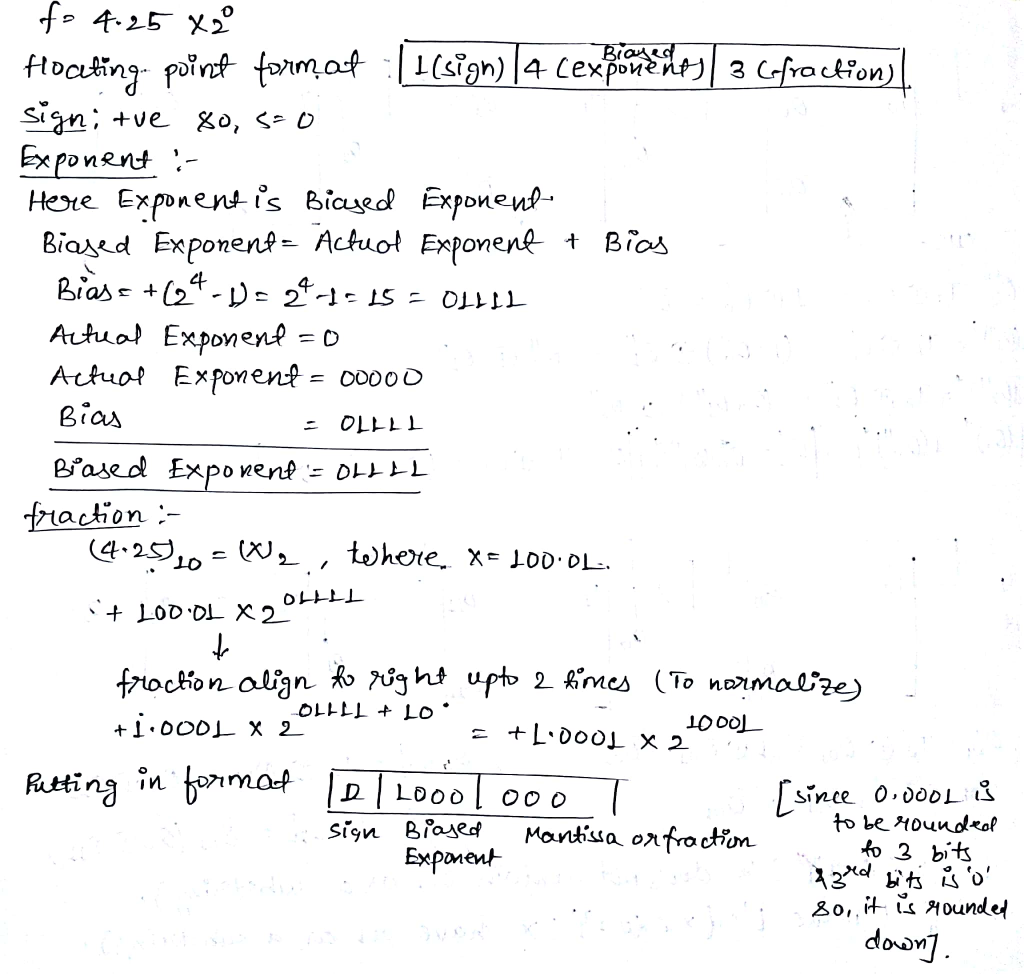 f= 4.25 x2⁰
floating point format : | 1(sign) | 4 (Biased exponent) | 3 (fraction) |
sign; +ve so, s=0
Exponent :-
Here Exponent is Biased Exponent.
Biased Exponent = Actual Exponent + Bias
Bias = +(2⁴-1) = 2⁴-1 = 15 = 01111
Actual Exponent = 0
Actual Exponent = 00000
Bias = 01111
Biased Exponent = 01111
fraction :-
(4.25)₁₀ = (X)₂ , where x= 100.01.
+ 100.01 x 2^01111
↓
fraction align to right upto 2 times (To normalize)
+1.0001 x 2^01111 + 10 = +1.0001 x 2^10001
Putting in format | 0 | 1000 | 000 |
sign Biased Exponent Mantissa or fraction
[since 0.0001 is
to be rounded
to 3 bits
& 3rd bits is '0'
so, it is rounded
down].